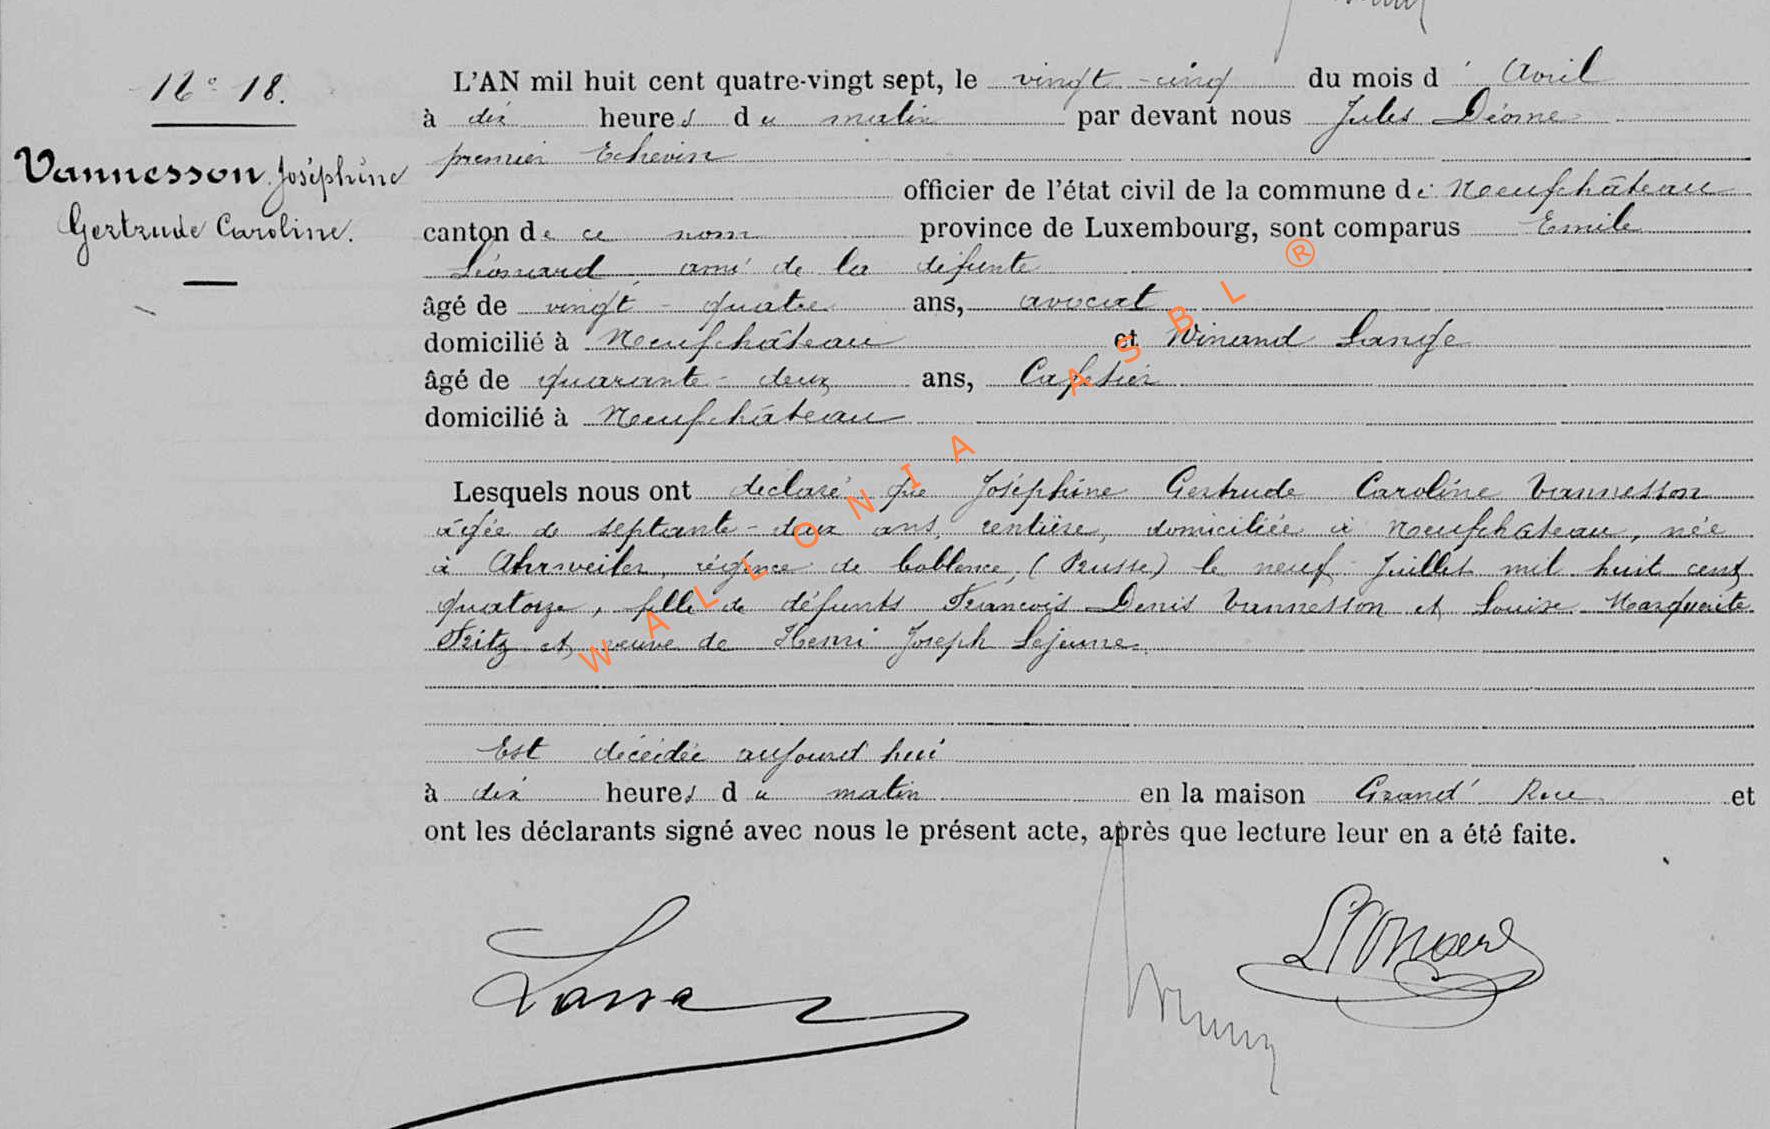 N° 18.
Vannesson Joséphine
Gertrude Caroline.
L'AN mil huit cent quatre-vingt sept, le vingt-cinq du mois d'Avril
à dix heures du matin par devant nous Jules Déome
premier Echevin
officier de l'état civil de la commune de Neufchâteau
canton de ce nom province de Luxembourg, sont comparus Emile
Léonard, ami de la défunte
âgé de vingt-quatre ans, avocat
domicilié à Neufchâteau et Winand Lange
âgé de quarante-deux ans, Cafetier
domicilié à Neufchâteau
Lesquels nous ont déclaré que Joséphine Gertrude Caroline Vannesson
âgée de septante-deux ans, rentière, domiciliée à Neufchateau, née
à Ahrweiler, régence de Coblence, (Prusse) le neuf Juillet mil huit cent
quatorze, fille de défunts François Denis Vannesson et Louise Marguerite
Fritz et veuve de Henri Joseph Lejeune.
Est décédée aujourd'hui
à dix heures du matin en la maison Grand'Rue et
ont les déclarants signé avec nous le présent acte, après que lecture leur en a été faite.
Léonard
WALLONIA ASBL ®